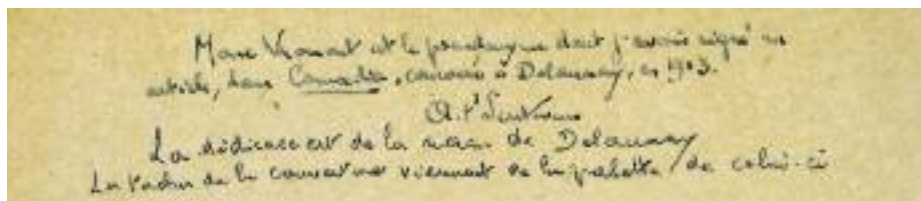 Marc Vromant est le pseudonyme dont j'avais signé un
article, dans Comœdia, consacré à Delaunay, en 1913.
A. t'Serstevens
La dédicace est de la main de Delaunay
Les taches de la couverture viennent de la palette de celui-ci